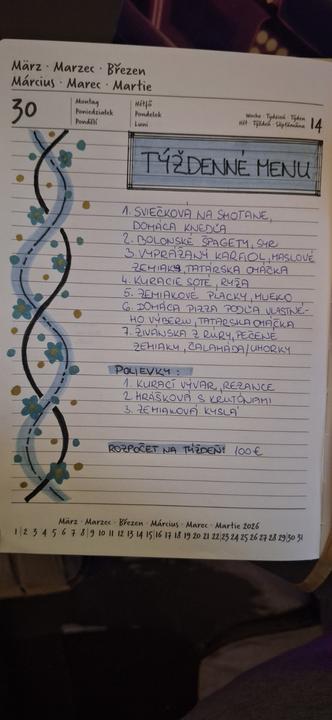 März · Marzec · Březen
Március · Marec · Martie
30
Montag
Poniedziałek
Pondělí
Hétfő
Pondelok
Luni
Woche · Tydzień · Týden
Hét · Týždeň · Săptămâna
14
TÝŽDENNÉ MENU
1. SVIEČKOVÁ NA SMOTANE,
DOMÁCA KNEDĽA
2. BOLONSKÉ ŠPAGETY, SYR
3. VYPRÁŽANÝ KARFIOL, MASLOVÉ
ZEMIAKY, TATÁRSKA OMÁČKA
4. KURACIE SOTÉ, RYŽA
5. ZEMIAKOVÉ PLACKY, MLIEKO
6. DOMÁCA PIZZA PODĽA VLASTNÉ-
HO VÝBERU, TATARSKA OMÁČKA
7. ŽIVÁNSKA Z RÚRY, PEČENÉ
ZEMIAKY, ČALAMÁDA/UHORKY
POLIEVKY:
1. KURACÍ VÝVAR, REZANCE
2. HRÁŠKOVÁ S KRUTÓNAMI
3. ZEMIAKOVÁ KYSLÁ
ROZPOČET NA TÝŽDEŇ: 100€
März · Marzec · Březen · Március · Marec · Martie 2026
1 2 3 4 5 6 7 8 9 10 11 12 13 14 15 16 17 18 19 20 21 22 23 24 25 26 27 28 29 30 31